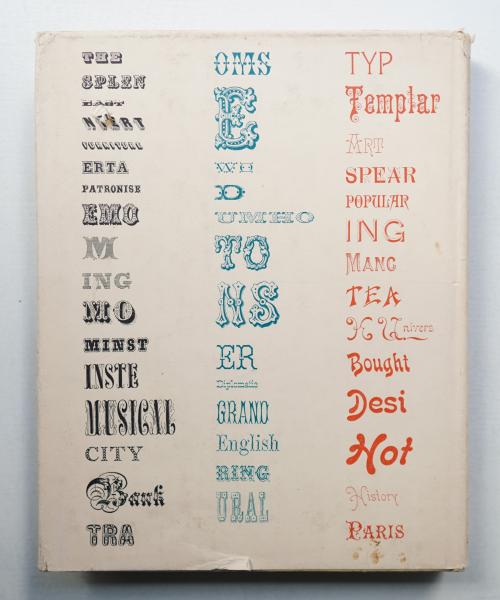 THE
SPLEN
EAST
NVERT
FURNITURE
ERTA
PATRONISE
EMO
M
ING
MO
MINST
INSTE
MUSICAL
CITY
Bank
TRA
OMS
E
WH
D
UMHO
TO
NS
ER
Diplomatic
GRAND
English
RING
URAL
TYP
Templar
ART
SPEAR
POPULAR
ING
MANC
TEA
H Univers
Bought
Desi
Hot
History
PARIS